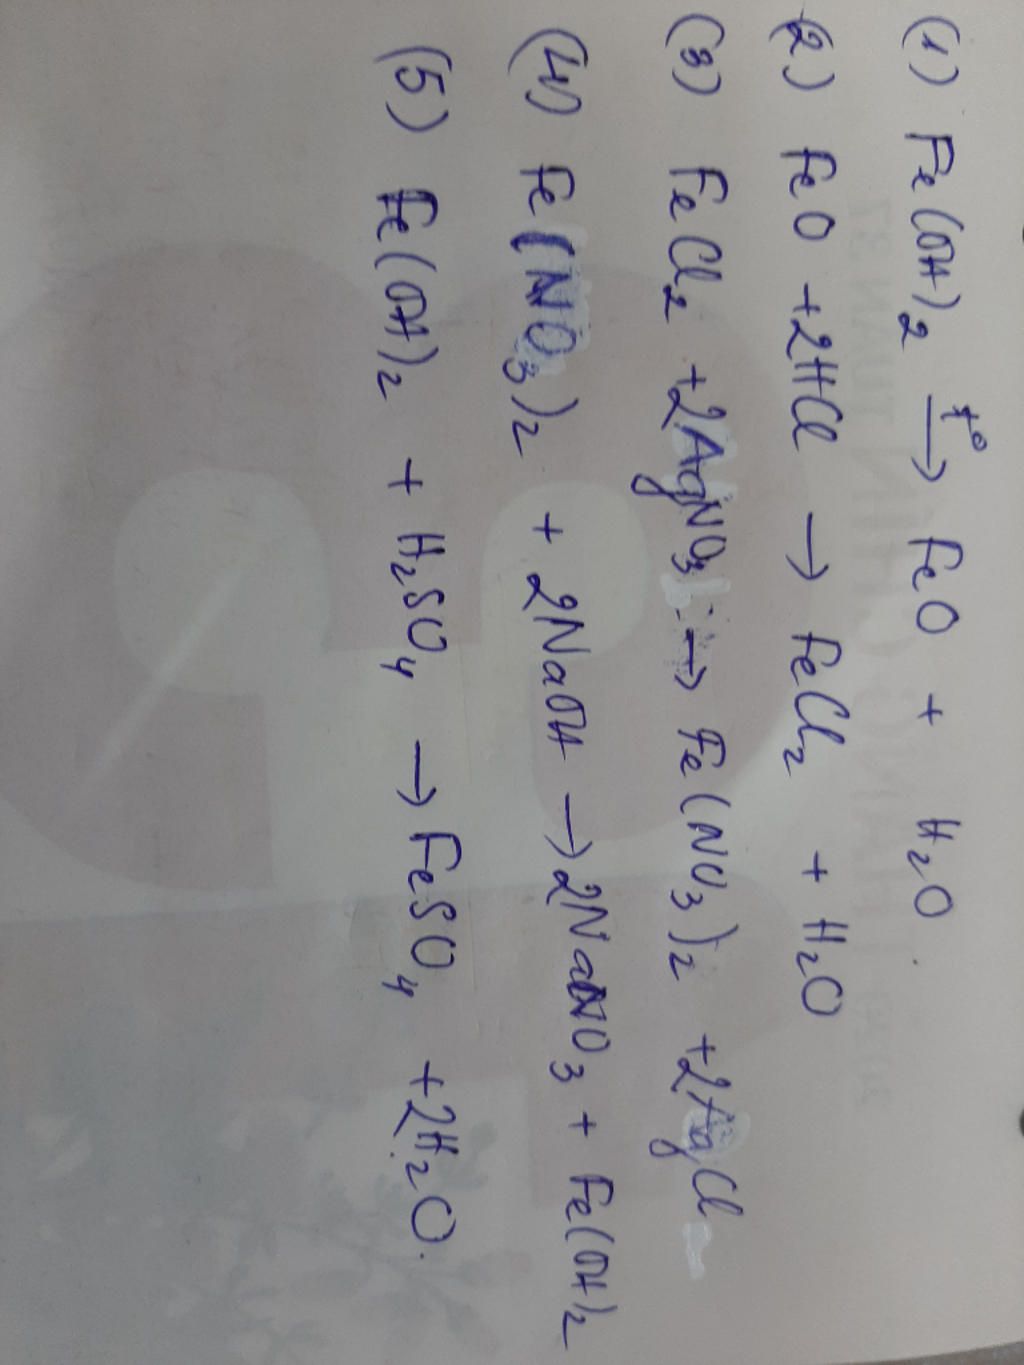 (1) Fe(OH)₂ →t° FeO + H₂O
(2) FeO + 2HCl → FeCl₂ + H₂O
(3) FeCl₂ + 2AgNO₃ → Fe(NO₃)₂ + 2AgCl
(4) Fe(NO₃)₂ + 2NaOH → 2NaNO₃ + Fe(OH)₂
(5) Fe(OH)₂ + H₂SO₄ → FeSO₄ + 2H₂O.